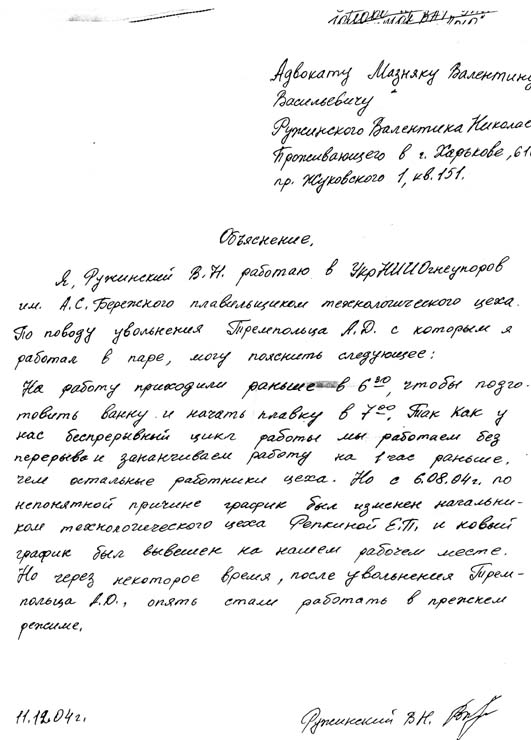 Адвокату Мазняку Валентину
Васильевичу
Ружинского Валентина Николае
Проживающего в г. Харькове, 61
пр. Жуковского 1, кв. 151.
Объяснение.
Я, Ружинский В.Н. работаю в УкрНИИОгнеупоров
им. А.С. Бережного плавильщиком технологического цеха.
По поводу увольнения Тремпольца А.Д. с которым я
работал в паре, могу пояснить следующее:
На работу приходили раньше в 6 20, чтобы подго-
товить ванну и начать плавку в 7 00. Так как у
нас беспрерывный цикл работы мы работаем без
перерыва и заканчиваем работу на 1 час раньше,
чем остальные работники цеха. Но с 6.08.04г. по
непонятной причине график был изменен начальни-
ком технологического цеха Репкиной Е.П. и новый
график был вывешен на нашем рабочем месте.
Но через некоторое время, после увольнения Трем-
польца А.D., опять стали работать в прежнем
режиме.
11.12.04г.
Ружинский В.Н.